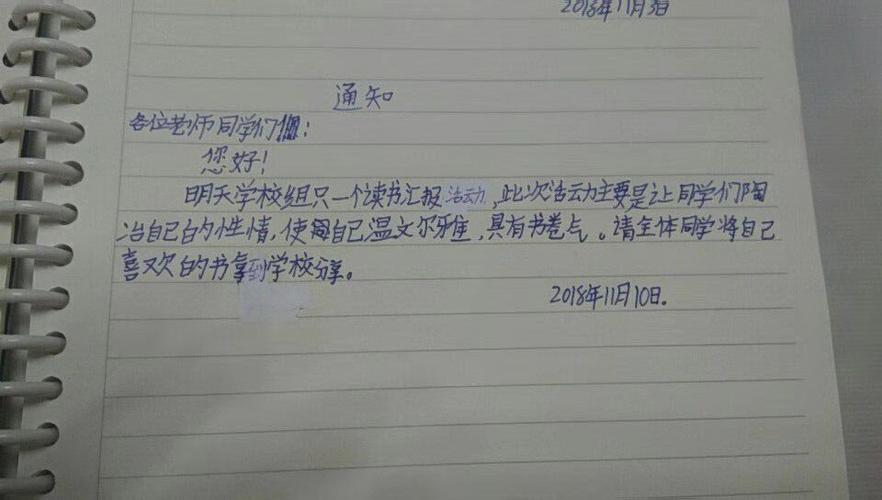 2018年11月3日
通知
各位老师同学们:
您好!
明天学校组只一个读书汇报活动,此次活动主要是让同学们陶
冶自己的性情,使自己温文尔雅,具有书卷气。请全体同学将自己
喜欢的书拿到学校分享。
2018年11月10日.